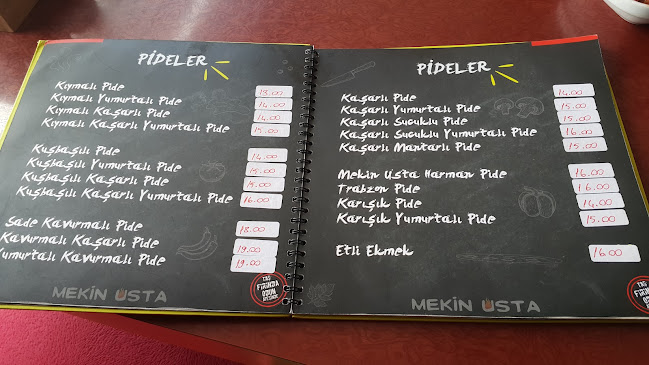 PİDELER
Kıymalı Pide 13.00
Kıymalı Yumurtalı Pide 14.00
Kıymalı Kaşarlı Pide 14.00
Kıymalı Kaşarlı Yumurtalı Pide 15.00
Kuşbaşılı Pide 14.00
Kuşbaşılı Yumurtalı Pide 15.00
Kuşbaşılı Kaşarlı Pide 15.00
Kuşbaşılı Kaşarlı Yumurtalı Pide 16.00
Sade Kavurmalı Pide 18.00
Kavurmalı Kaşarlı Pide 19.00
Yumurtalı Kavurmalı Pide 19.00
TAŞ
FIRINDA
ODUN
ATEŞİNDE
MEKİN USTA
PİDELER
Kaşarlı Pide 14.00
Kaşarlı Yumurtalı Pide 15.00
Kaşarlı Sucuklu Pide 15.00
Kaşarlı Sucuklu Yumurtalı Pide 16.00
Kaşarlı Mantarlı Pide 15.00
Mekin Usta Harman Pide 16.00
Trabzon Pide 16.00
Karışık Pide 14.00
Karışık Yumurtalı Pide 15.00
Etli Ekmek 16.00
TAŞ
FIRINDA
ODUN
ATEŞİNDE
MEKİN USTA